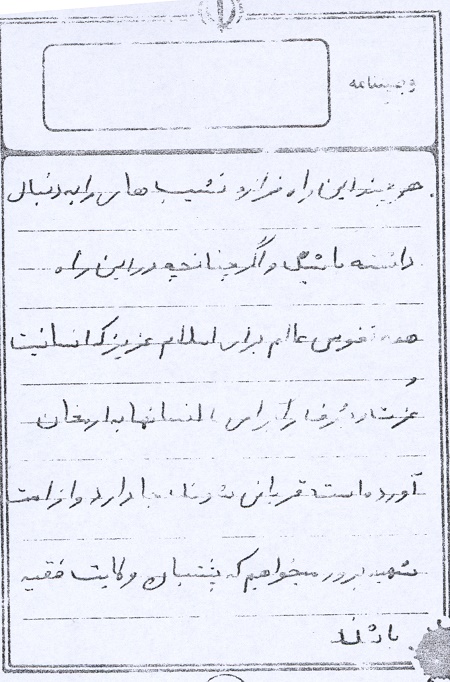 وصیتنامه
هر چند این راه فراز و نشیب های را به دنبال
داشته باشد و اگر چنانچه در این راه
همه نفوس عالم برای اسلام عزیز که انسانیت
و
عزت و شرف را برای انسانها به ارمغان
آورده است قربانی شوند جا دارد و از امت
شهید پرور میخواهیم که پشتیبان ولایت فقیه
باشند